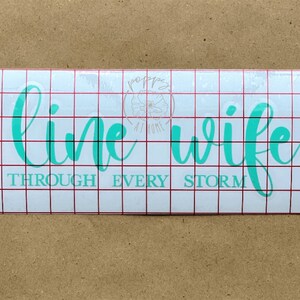 poppy
line wife
THROUGH EVERY STORM